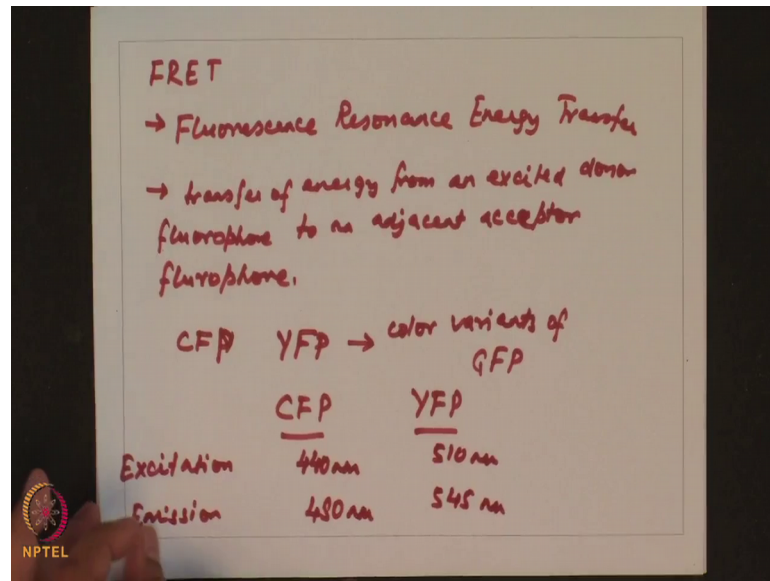 FRET
→ Fluorescence Resonance Energy Transfer
→ transfer of energy from an excited donor
fluorophone to an adjacent acceptor
flurophone.
CFP YFP → color variants of
GFP
CFP YFP
Excitation 440nm 510nm
Emission 480nm 545nm
NPTEL